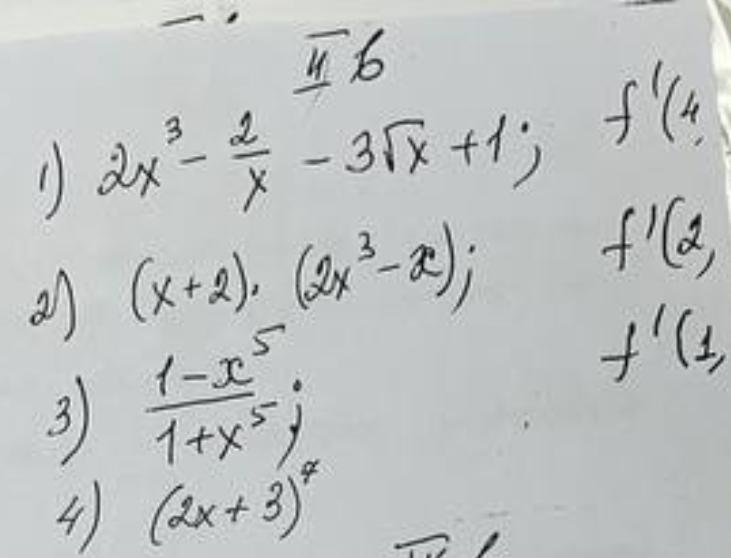 II в
1) 2x³ - 2/x - 3√x + 1; f'(4
2) (x+2)·(2x³-x); f'(2
3) (1-x⁵)/(1+x⁵); f'(1
4) (2x+3)⁷